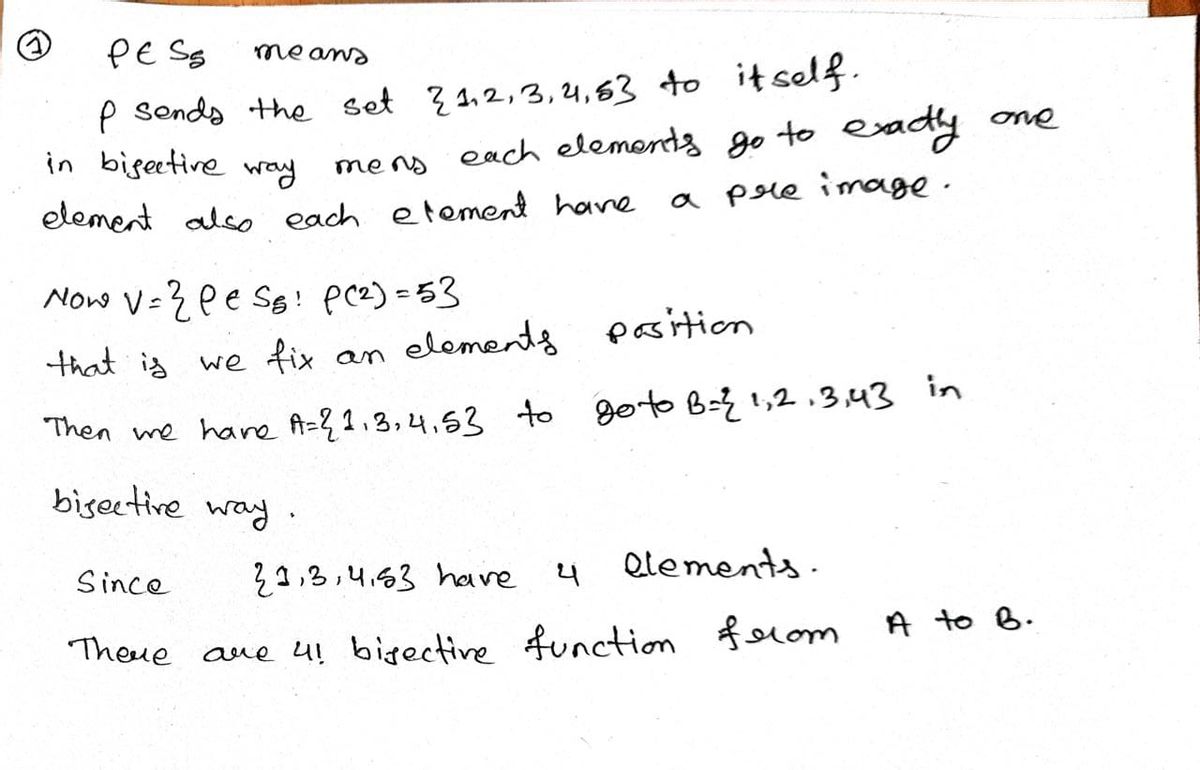 ① ρ ∈ S₅ means
ρ sends the set {1,2,3,4,5} to itself.
in bijective way mens each elements go to exactly one
element also each element have a pre image.
Now V={ρ ∈ S₅: ρ(2)=5}
that is we fix an elements position
Then we have A={1,3,4,5} to go to B={1,2,3,4} in
bijective way.
Since {1,3,4,5} have 4 elements.
There are 4! bijective function from A to B.